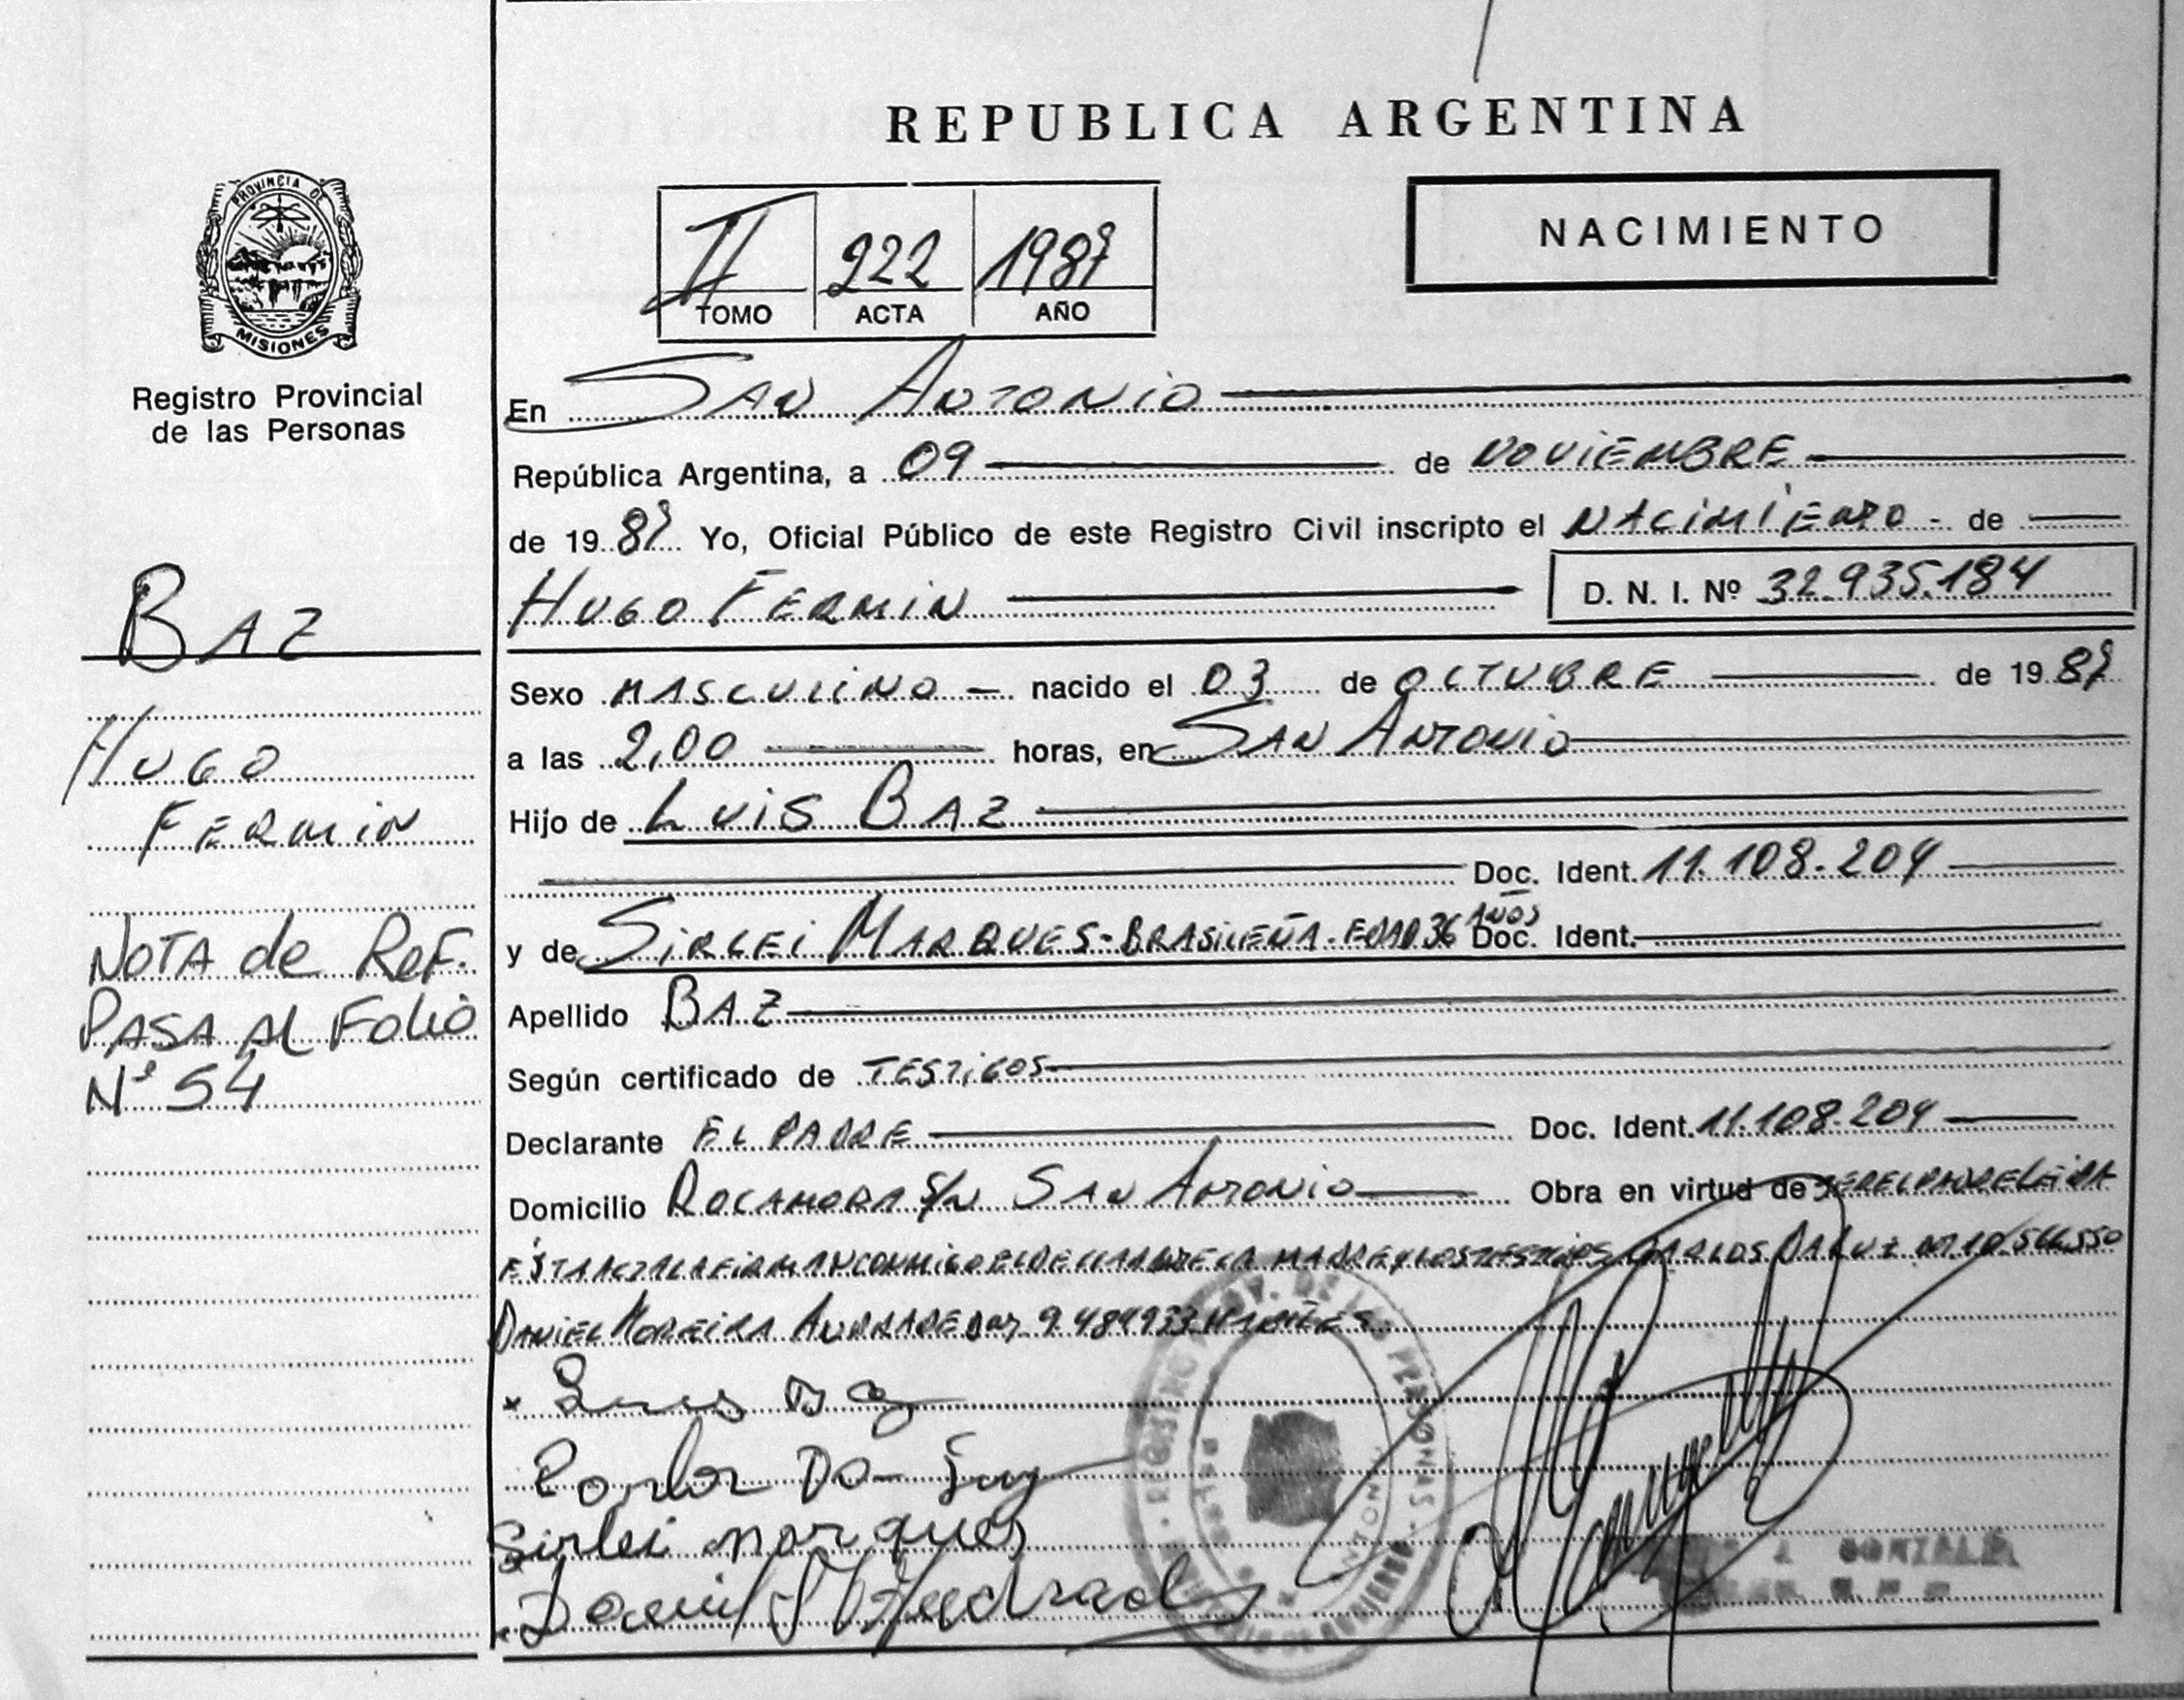 REPUBLICA ARGENTINA
PROVINCIA DE
MISIONES
Registro Provincial
de las Personas
II 222 1987
TOMO ACTA AÑO
NACIMIENTO
En SAN ANTONIO
República Argentina, a 09 de NOVIEMBRE
de 19 87 Yo, Oficial Público de este Registro Civil inscripto el NACIMIENTO - de
HUGO FERMIN D. N. I. Nº 32.935.184
BAZ
HUGO
FERMIN
NOTA de REF.
PASA AL FOLIO
Nº 54
Sexo MASCULINO - nacido el 03 de OCTUBRE de 19 87
a las 2,00 horas, en SAN ANTONIO
Hijo de LUIS BAZ
Doc. Ident. 11.108.204
y de SIRLEI MARQUES - BRASILEÑA - EDAD 36 AÑOS Doc. Ident.
Apellido BAZ
Según certificado de TESTIGOS
Declarante EL PADRE Doc. Ident. 11.108.204
Domicilio ROCAMORA S/N SAN ANTONIO Obra en virtud de SER EL PADRE LEIDA
ESTA ACTA LA FIRMAN CONMIGO EL DECLARANTE LA MADRE Y LOS TESTIGOS CARLOS DA LUZ
DANIEL MOREIRA ANDRADE 9.484933
Luis Baz
Carlos Da Luz
Sirlei Marques
Daniel M Andrade